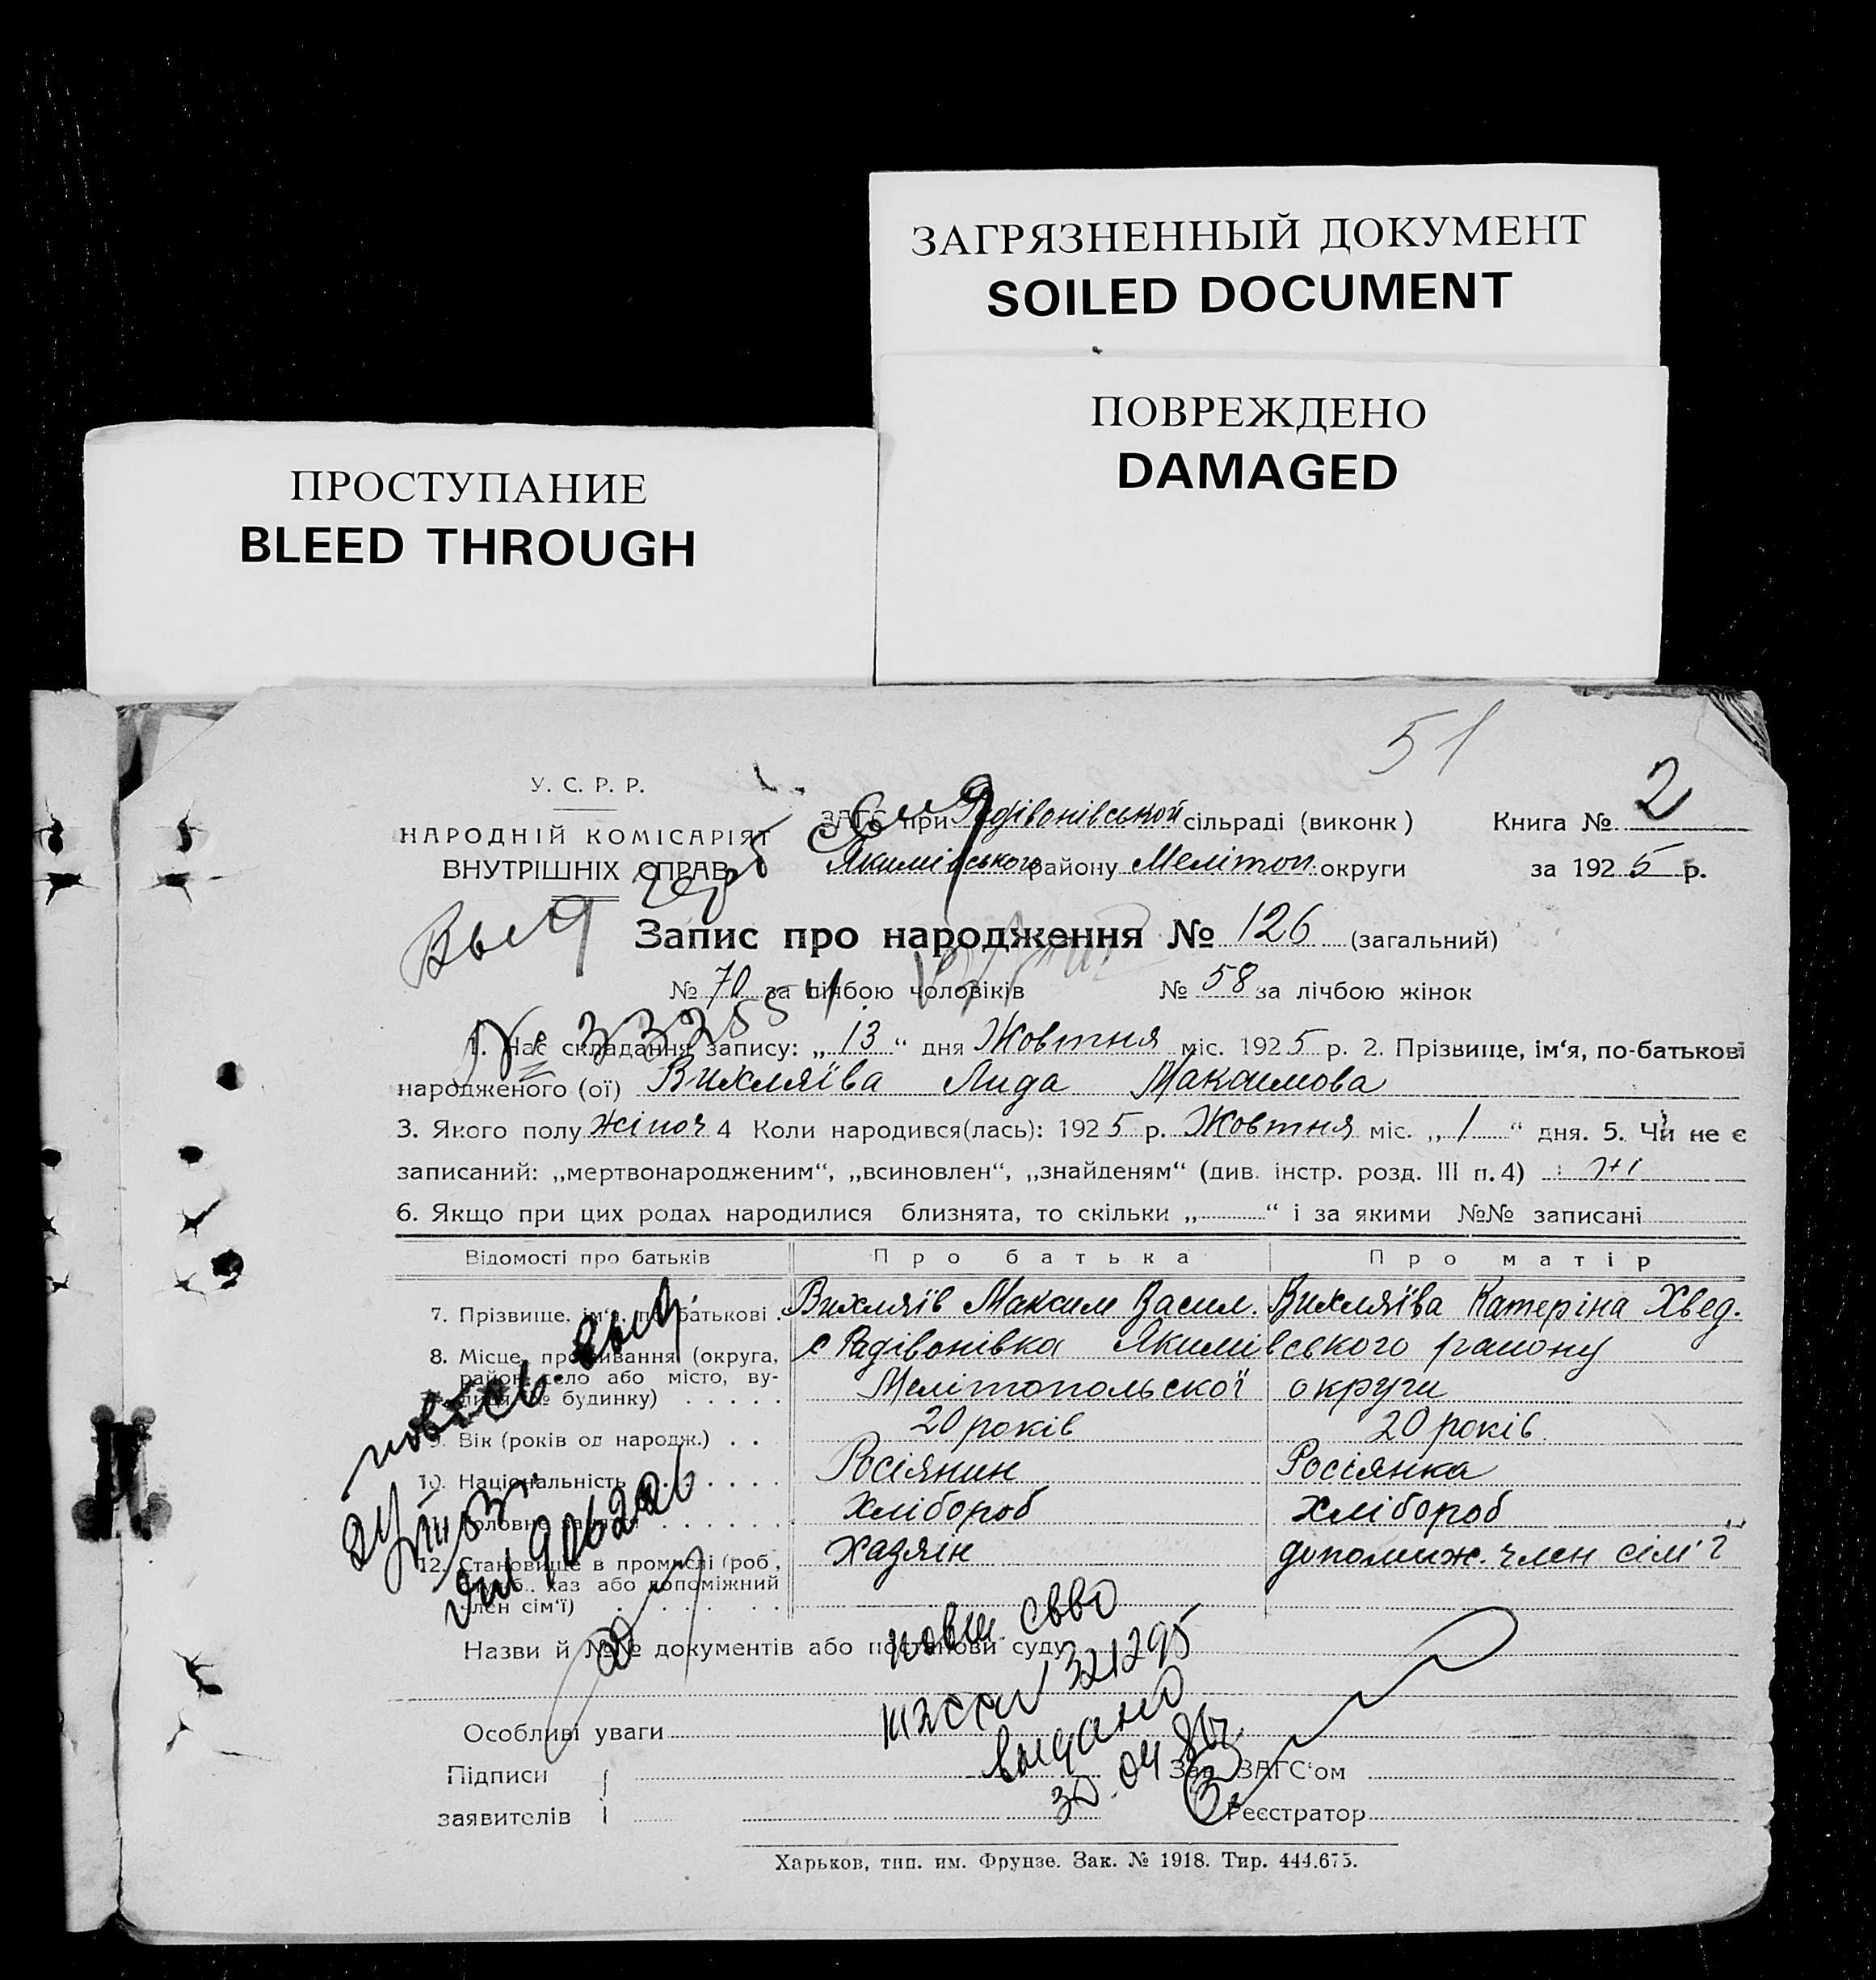 ЗАГРЯЗНЕННЫЙ ДОКУМЕНТ
SOILED DOCUMENT
ПОВРЕЖДЕНО
DAMAGED
ПРОСТУПАНИЕ
BLEED THROUGH
51
У. С. Р. Р.
НАРОДНІЙ КОМІСАРІЯТ
ВНУТРІШНІХ СПРАВ
ЗАГС при Радівонівськой сільраді (виконк)
Книга № 2
Якимівського району Мелітоп. округи
за 1925 р.
Запис про народження № 126 (загальний)
№ 70 за лічбою чоловіків № 58 за лічбою жінок
1. Час складання запису: „13“ дня Жовтня міс. 1925 р. 2. Прізвище, ім‘я, по-батькові
народженого (ої) Вихляїва Лида Максимова
3. Якого полу жіноч 4 Коли народився(лась): 1925 р. Жовтня міс. „1“ дня. 5. Чи не є
записаний: „мертвонародженим“, „всиновлен“, „знайденям“ (див. інстр. розд. III п. 4)
6. Якщо при цих родах народилися близнята, то скільки „ “ і за якими №№ записані
Відомості про батьків Про батька Про матір
7. Прізвище, ім‘я, по батькові . Вихляїв Максим Васил. Вихляїва Катеріна Хвед.
8. Місце проживання (округа, с Радівонівка Якимівського району
район, село або місто, ву-
лиця, № будинку) . . . . . Мелітопольскої округи
9. Вік (років од народж.) . . 20 років 20 років
10. Національність . . . . Росіянин Росіянка
хлібороб хлібороб
12. Становище в промислі (роб., Хазяїн допоміж. член сім'ї
хаз або допоміжний
член сім‘ї)
Назви й №№ документів або постанови суду
повт. свво
321295
выдано
30.04
Особливі уваги
Підписи
заявителів
Зав. ЗАГС‘ом
Реєстратор
Харьков, тип. им. Фрунзе. Зак. № 1918. Тир. 444.675.